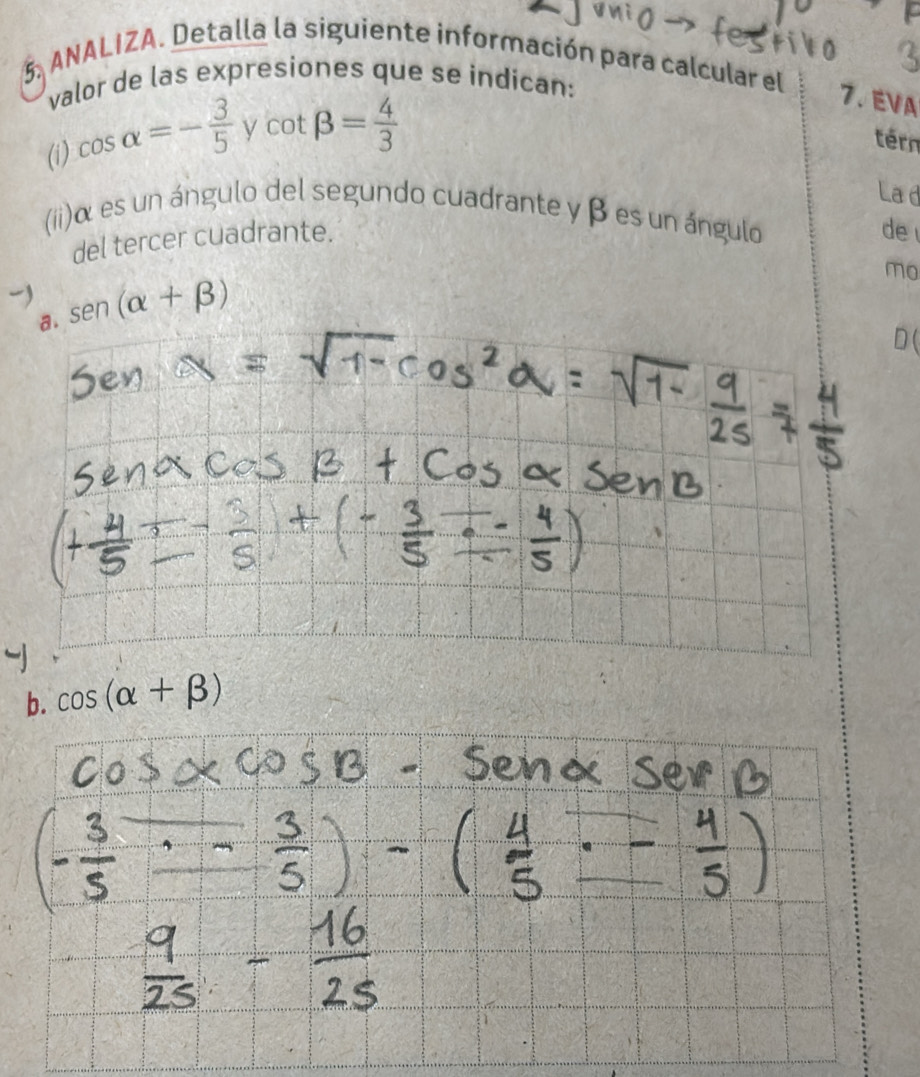 2) Junio → festivo
5. ANALIZA. Detalla la siguiente información para calcular el
valor de las expresiones que se indican:
(i) cos α = -3/5 y cot β = 4/3
(ii) α es un ángulo del segundo cuadrante y β es un ángulo
del tercer cuadrante.
a. sen (α + β)
Sen α = √1-cos²α = √1- 9/25 = + 4/5
sen α cos B + Cos α Sen B
(+ 4/5 · - 3/5) + (- 3/5 · - 4/5)
b. cos (α + β)
cos α cos B - Sen α Sen B
(- 3/5 · - 3/5) - (4/5 · - 4/5)
9/25 - 16/25
7. EVA
térm
La d
de
mo
D(